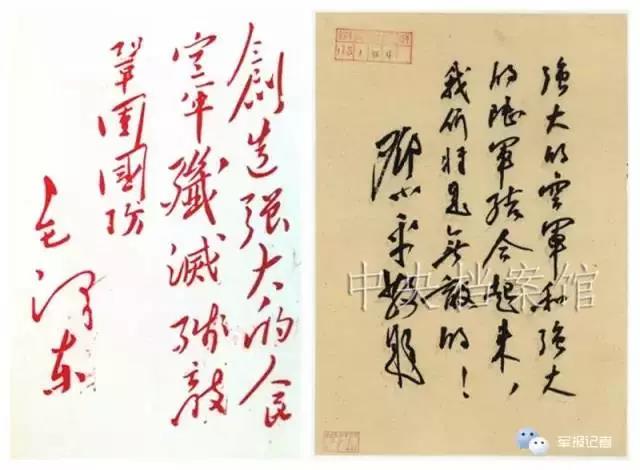 創造强大的人民
空軍殲滅殘敵
鞏固國防
毛澤东
强大的空軍和强大
的陸軍結合起来，
我們将是無敵的！
鄧小平敬題
中央档案馆
军报记者